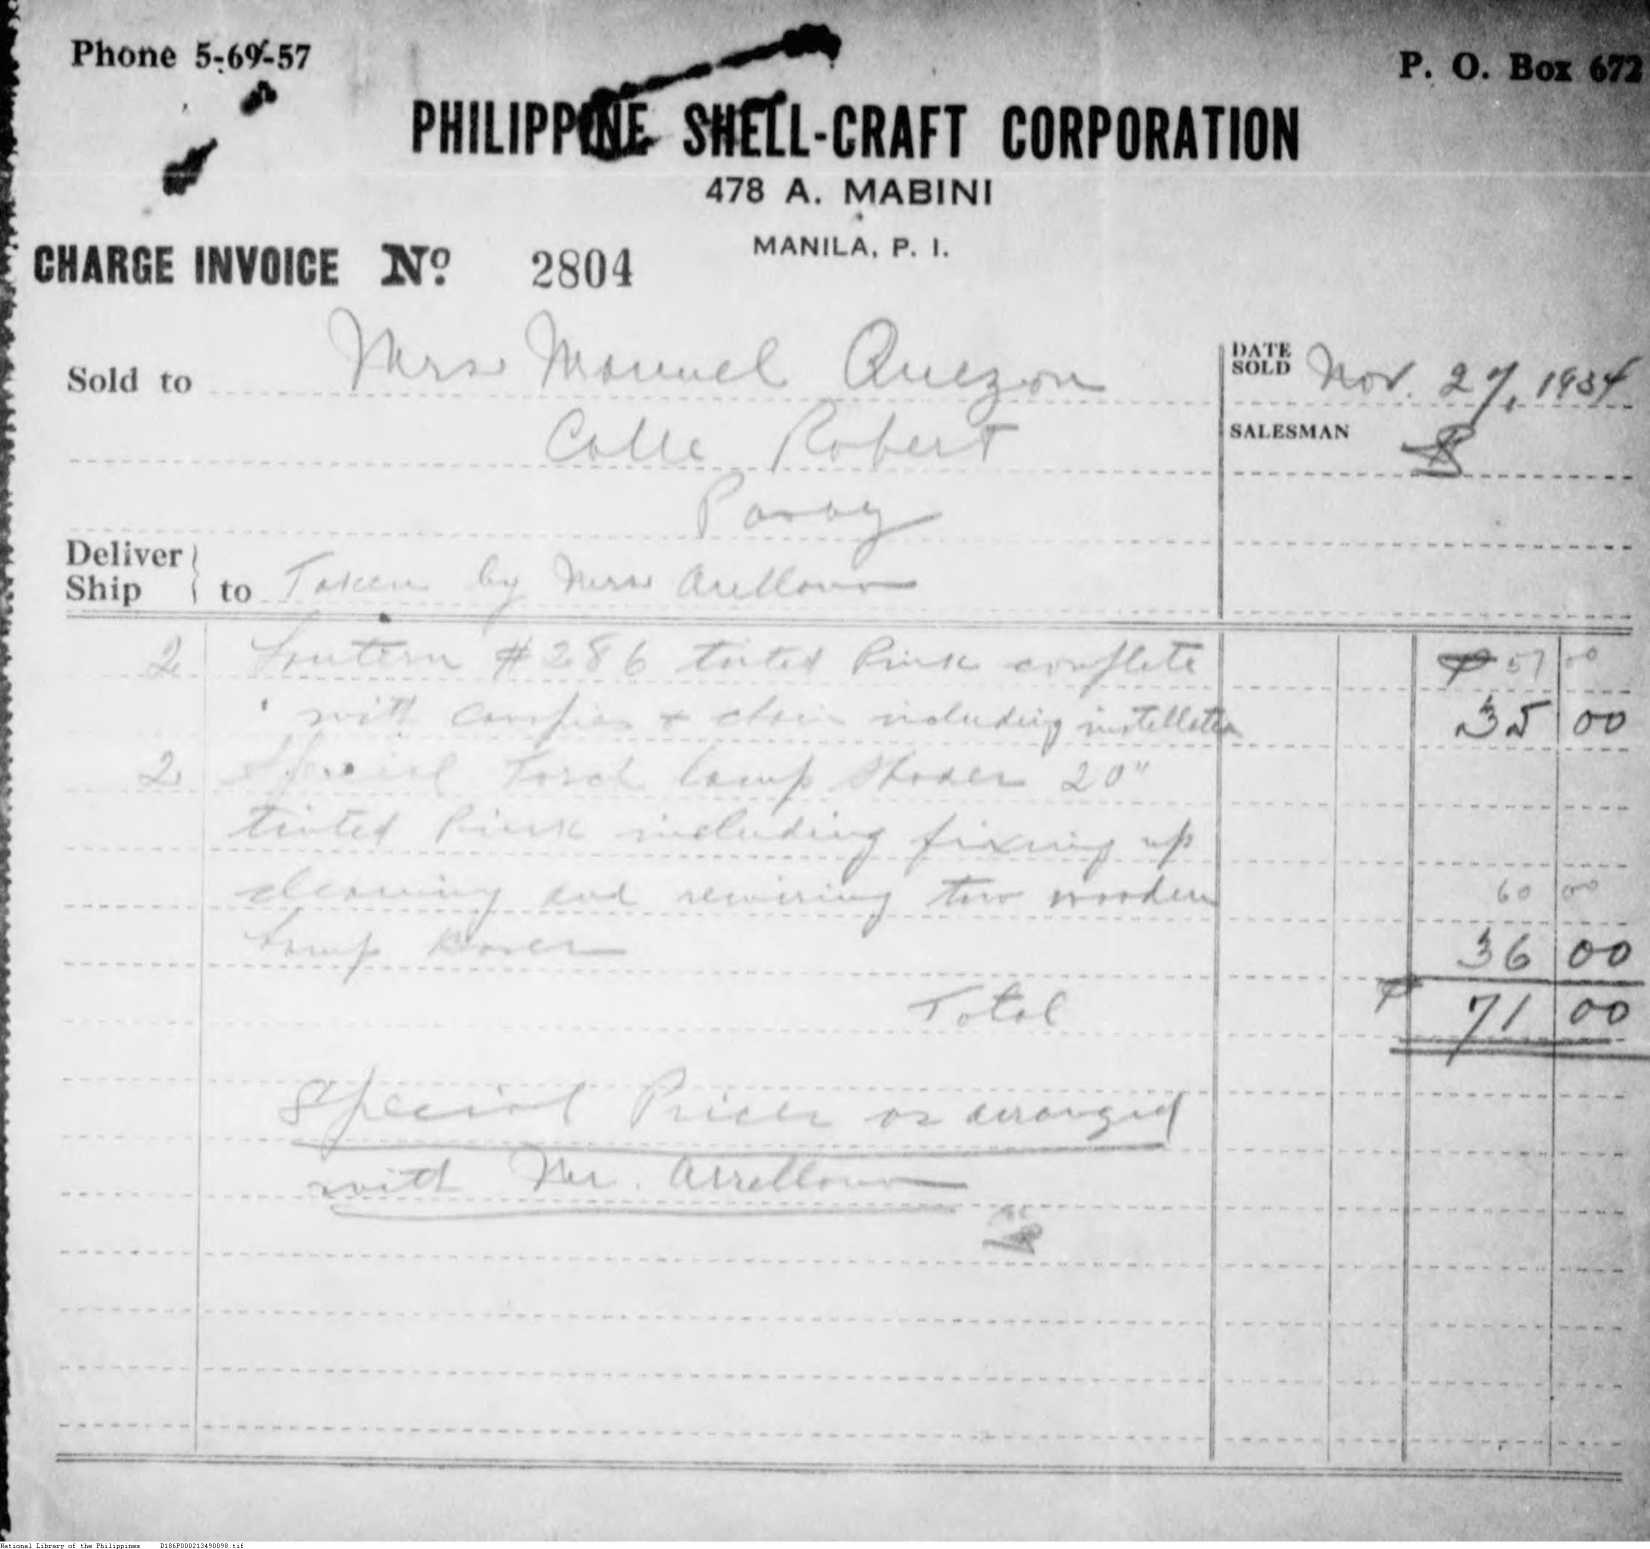 Phone 5-69-57
P. O. Box 672
PHILIPPINE SHELL-CRAFT CORPORATION
478 A. MABINI
MANILA, P. I.
CHARGE INVOICE No. 2804
Sold to Mrs Manuel Quezon
DATE SOLD Nov. 27, 1934
Calle Robert
SALESMAN
Pasay
Deliver Ship to Taken by Mrs Arellano
2 Lantern #286 tinted Pink complete ₱ 57 00
with canopies & chain including installation 35 00
2 Special Torch lamp shades 20"
tinted Pink including fixing up
cleaning and rewiring two wooden 60 00
Lamp Bases 36 00
Total ₱ 71 00
Special Prices as arranged
with Mr. Arrellano
National Library of the Philippines D186P000213490098.tif